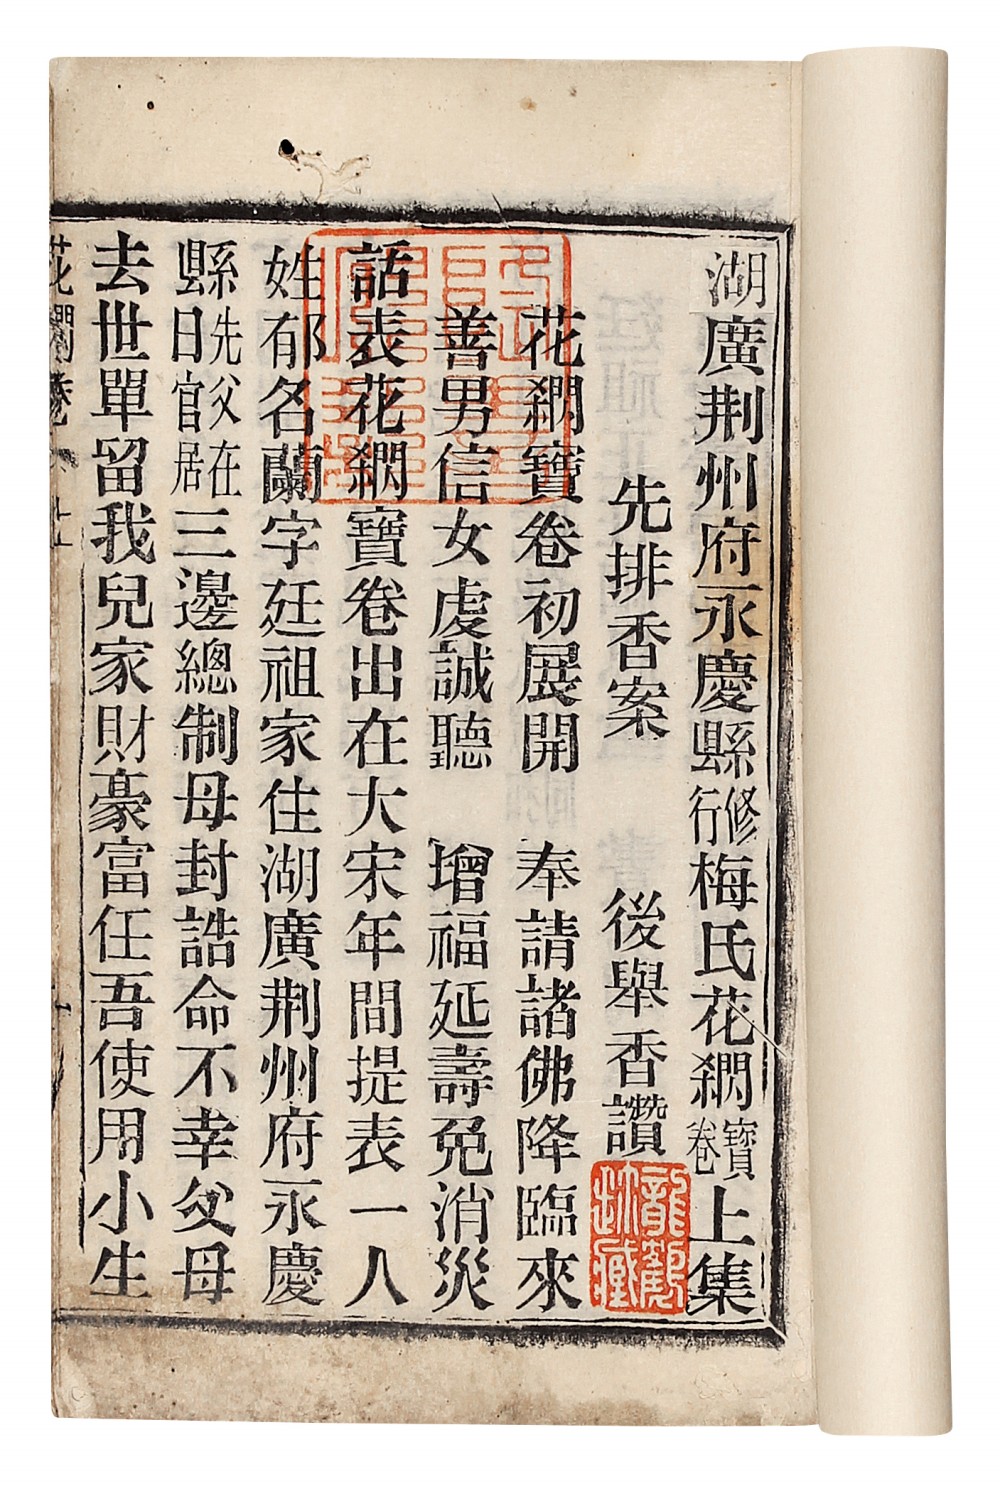 湖廣荆州府永慶縣修行梅氏花𣚴寶卷上集
先排香案　後舉香讚
花𣚴寶卷初展開　奉請諸佛降臨來
善男信女虔誠聽　增福延壽免消災
話表花𣚴寶卷出在大宋年間提表一人
姓郁名蘭字廷祖家住湖廣荆州府永慶
縣先父在日官居三邊總制母封誥命不幸父母
去世單留我兒家財豪富任吾使用小生